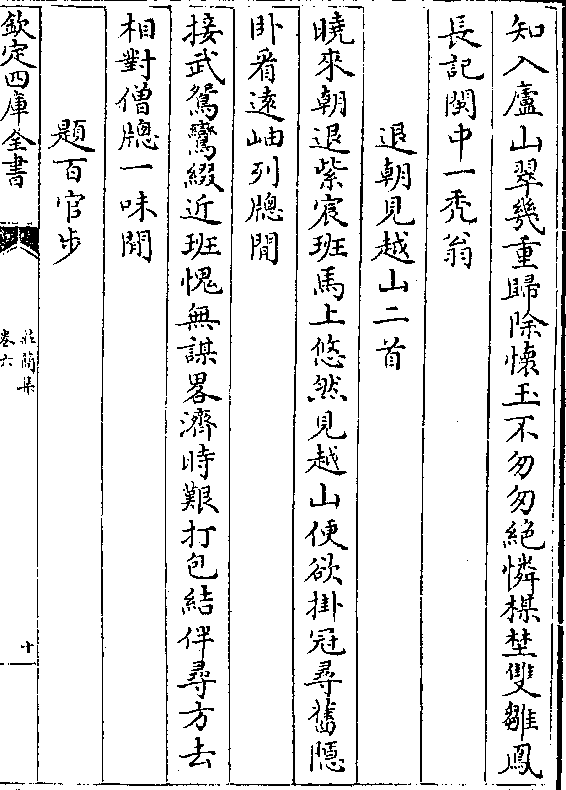 知入廬山翠幾重歸除懷玉不匆匆絶憐楳埜雙雛鳳
長記閩中一秃翁
退朝見越山二首
曉來朝退紫宸班馬上悠然見越山便欲掛冠尋舊隠
卧看遠岫列牕間
接武鴛鸞綴近班愧無謀畧濟時艱打包結伴尋方去
相對僧牕一味閒
題百官步
欽定四庫全書
莊簡集
卷六
十